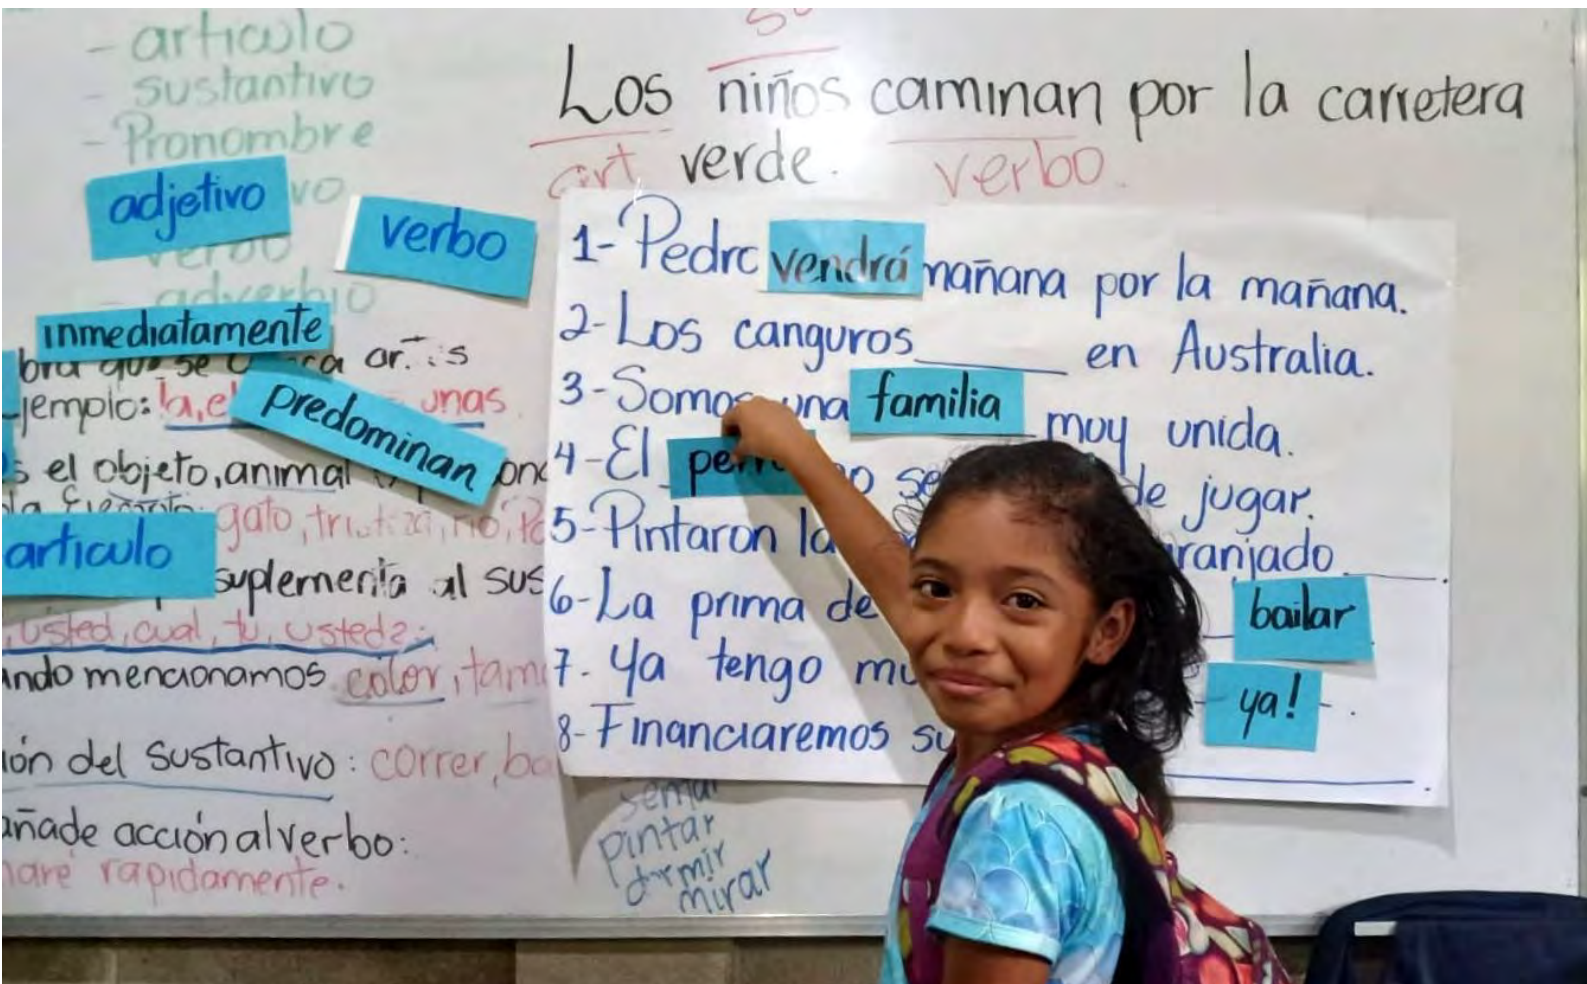 - articulo
- sustantivo
- Pronombre
adjetivo
verbo
verbo
- adverbio
inmediatamente
predominan
articulo
la, e
unas.
s el objeto, animal
gato,
suplementa al sus
, usted, cual, tu, ustedes.
ando mencionamos color, tam
ión del sustantivo: correr, ba
añade acción al verbo:
rapidamente.
Los niños caminan por la carretera
verde.
art
verbo.
1- Pedro vendrá mañana por la mañana.
2- Los canguros ______ en Australia.
3- Somos una familia muy unida.
4- El de jugar.
5- Pintaron la ranjado ______.
6- La prima de ______ bailar
7. Ya tengo mu ya! .
8- Financiaremos su
pintar
dormir
mirar